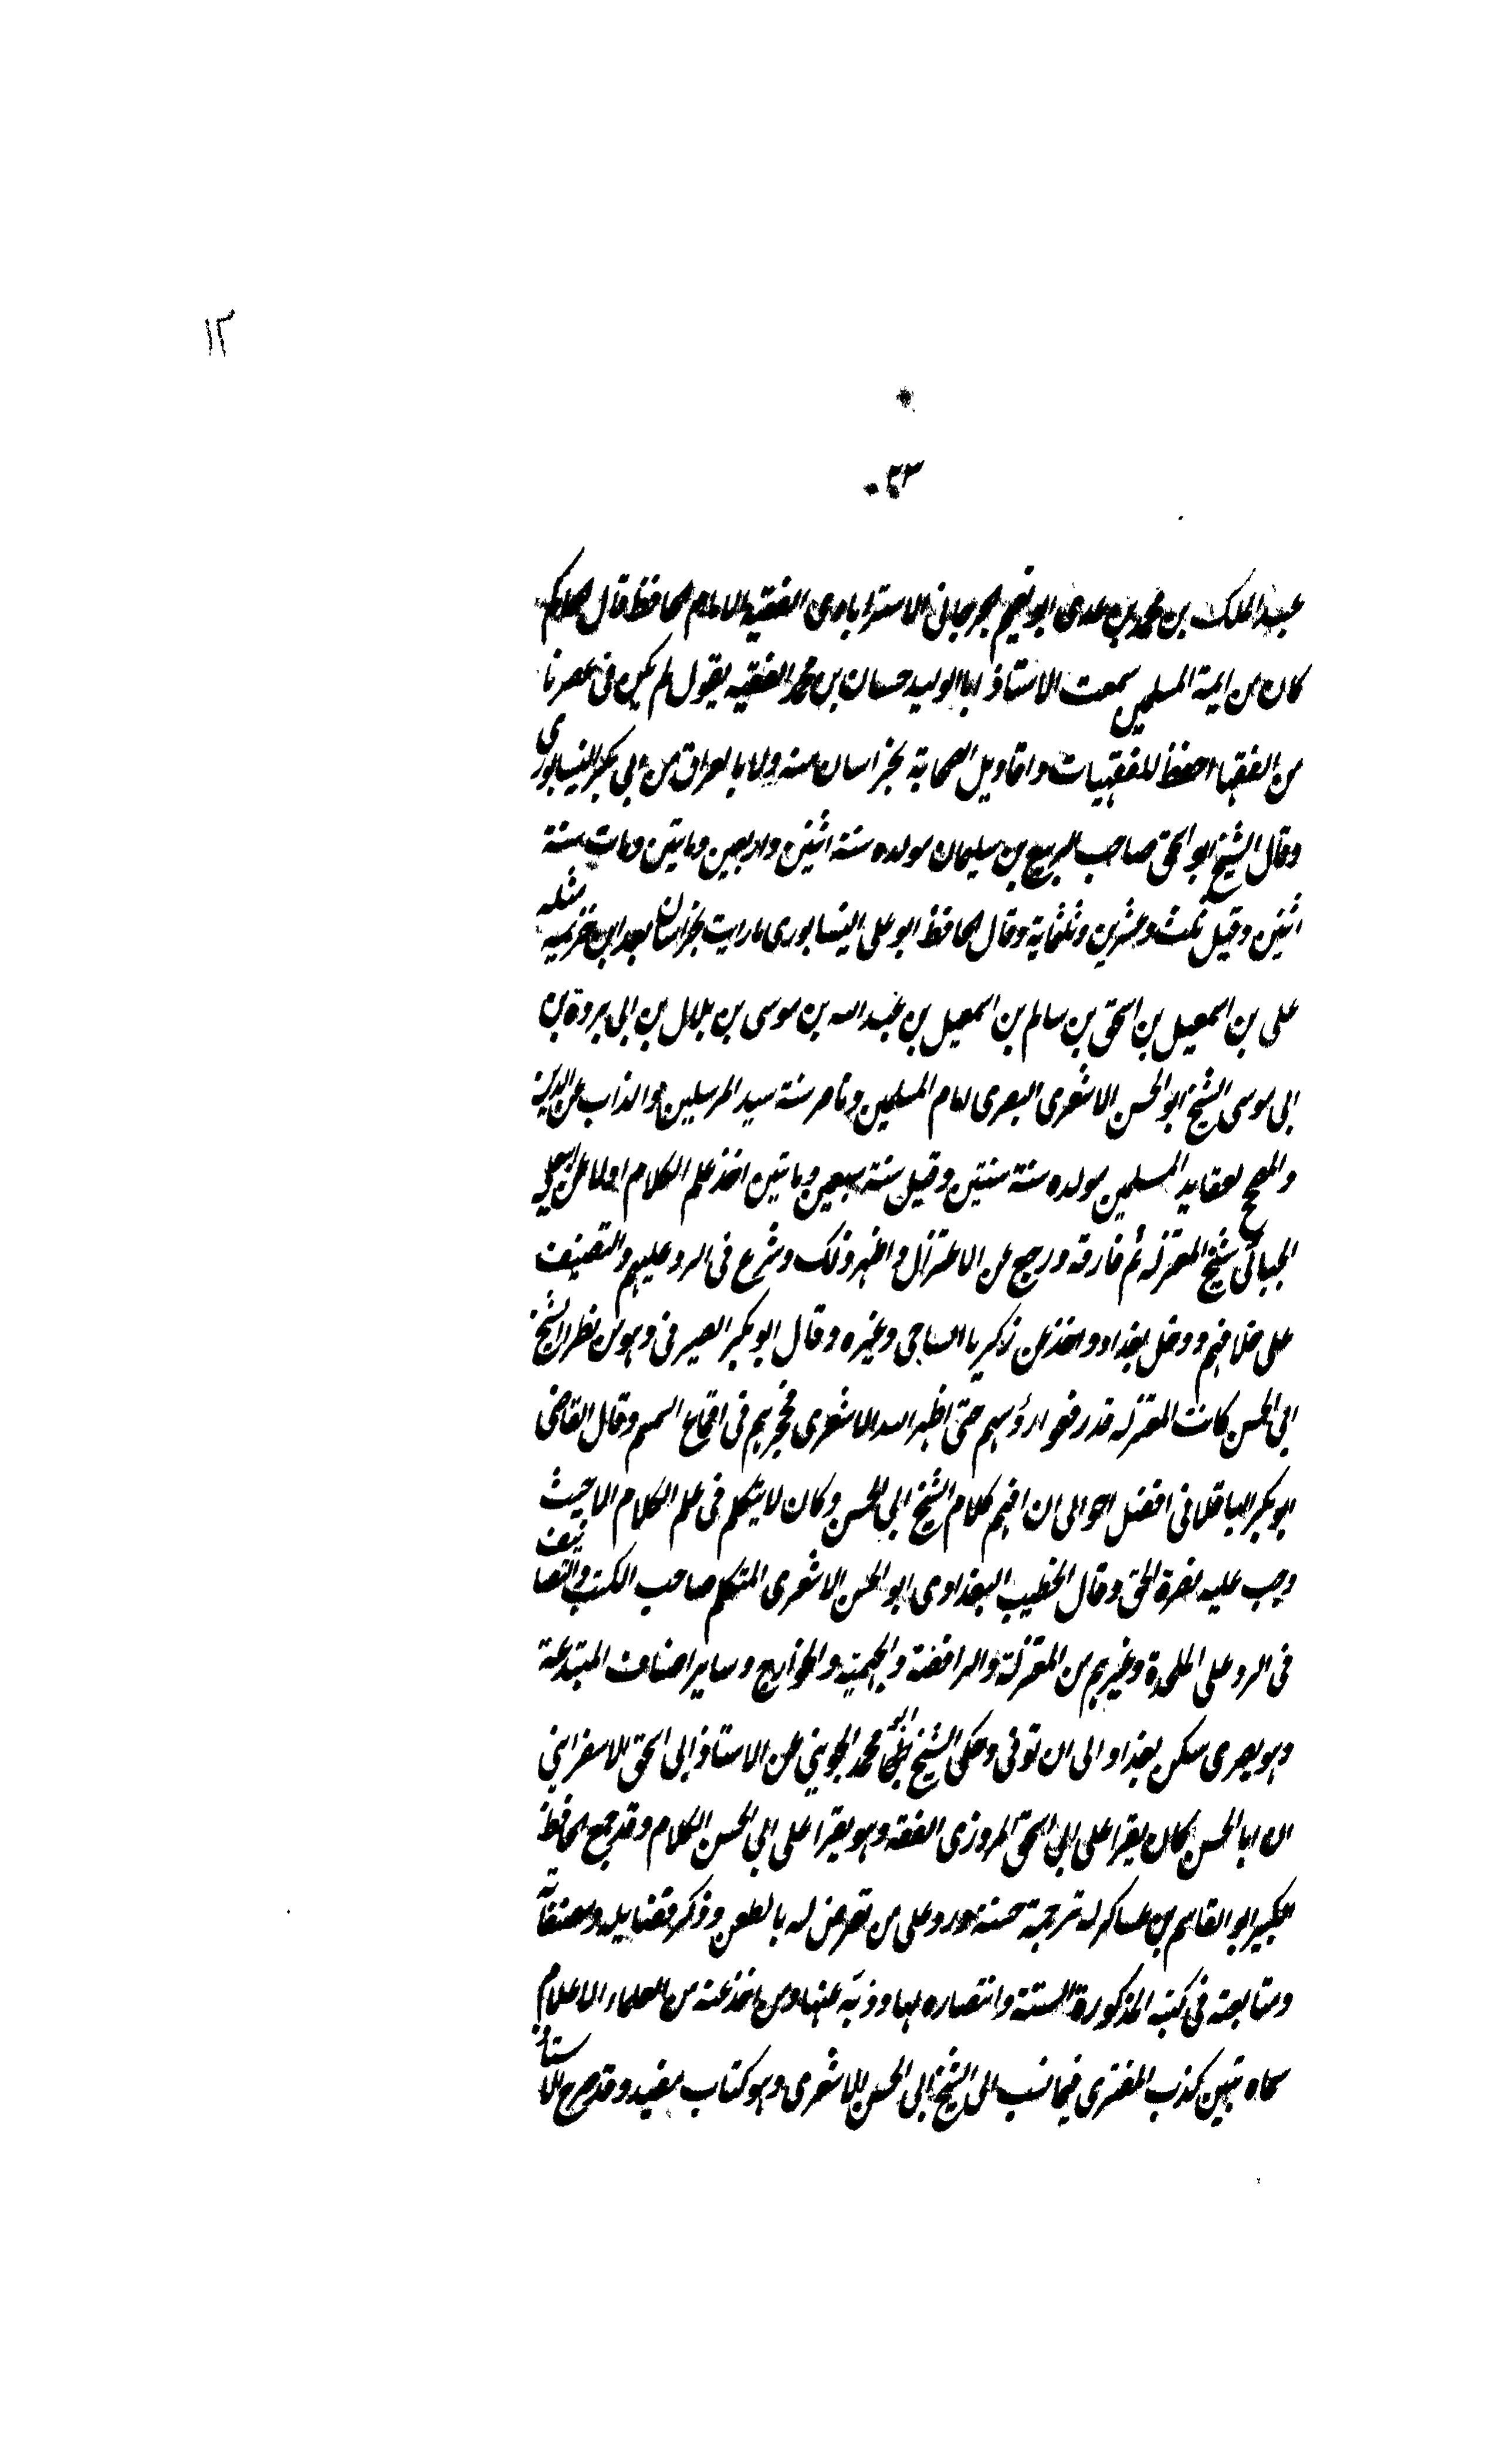 ١٢
٣٣
عبد الملك بن محمد بن عدى ابو نعيم الجرجانى الاسترابادى الفقيه الامام الحافظ قال الحاكم
كان من ايمة المسلمين سمعت الاستاذ ابا الوليد حسان بن محمد الفقيه يقول لم يكن فى عصرنا
من الفقهاء احفظ للفقهيات واقاويل الصحابة بخراسان منه ولا بالعراق من ابى بكر النيسابورى
وقال الشيخ ابو اسحق صاحب الربيع بن سليمان مولده سنة اثنين واربعين وماتين ومات سنة
اثنين وقيل ثلث وعشرين وثلثماية وقال الحافظ ابو على النيسابورى ما رايت بخراسان بعد ابن خزيمه مثله
على بن اسمعيل بن اسحق بن سالم بن اسمعيل بن عبد الله بن موسى بن بلال بن ابى بردة بن
ابى موسى الشيخ ابو الحسن الاشعرى البصرى امام المسلمين وناصر سنة سيد المرسلين والذاب عن الدين
والمصحح لعقايد المسلمين مولده سنة ستين وقيل سنة سبعين وماتين اخذ علم الكلام اولا عن ابى على
الجبائى شيخ المعتزله ثم فارقه ورجع عن الاعتزال واظهر ذلك وشرع فى الرد عليهم والتصنيف
على خلافهم ودخل بغداد واخذ عن زكريا الساجى وغيره وقال ابو بكر الصيرفى وهو من نظراء الشيخ
ابى الحسن كانت المعتزله قد رفعوا رؤسهم حتى اظهر الله الاشعرى فحجزهم فى اقماع السمسم وقال القاضى
ابو بكر الباقلانى افضل احوالى ان افهم كلام الشيخ ابى الحسن وكان لا يتكلم فى علم الكلام الا حيث
وجب عليه نصرة الحق وقال الخطيب البغدادى ابو الحسن الاشعرى المتكلم صاحب الكتب والتصانيف
فى الرد على الملحدة وغيرهم من المعتزلة والرافضة والجهمية والخوارج وساير اصناف المبتدعة
وهو بصرى سكن بغداد الى ان توفى وحكى الشيخ ابو محمد الجوينى عن الاستاذ ابى اسحق الاسفراينى
ان ابا الحسن كان يقرا على ابى اسحق المروزى الفقه وهو يقرا على ابى الحسن الكلام وقد جمع الحافظ
الكبير ابو القاسم بن عساكر له ترجمة حسنة ورد على من تعرض له بالطعن وذكر فضايله ومصنفاته
ومتابعته فى كتبه المذكورة السنة وانتصاره لها وذبه عنها ومن اخذ عنه من العلماء الاعلام
سماه تبيين كذب المفترى فيما نسب الى الشيخ ابى الحسن الاشعرى وهو كتاب مفيد وقد صرح الاستاذ